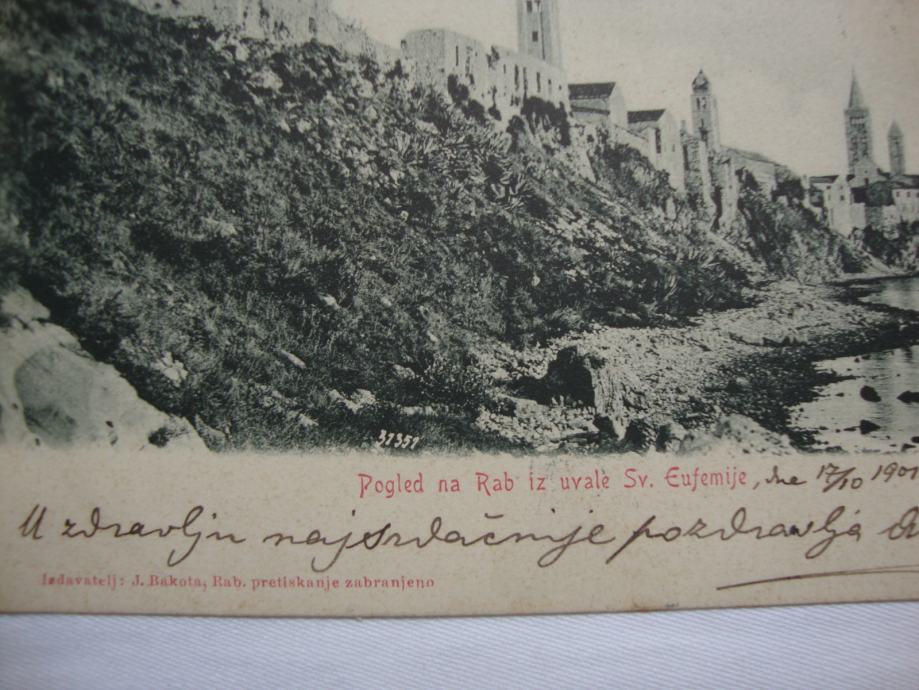 31351
Pogled na Rab iz uvale Sv. Eufemije, dne 17/10 1901
U zdravlju najsrdačnije pozdravlja
Izdavatelj: J. Bakota, Rab. pretiskanje zabranjeno